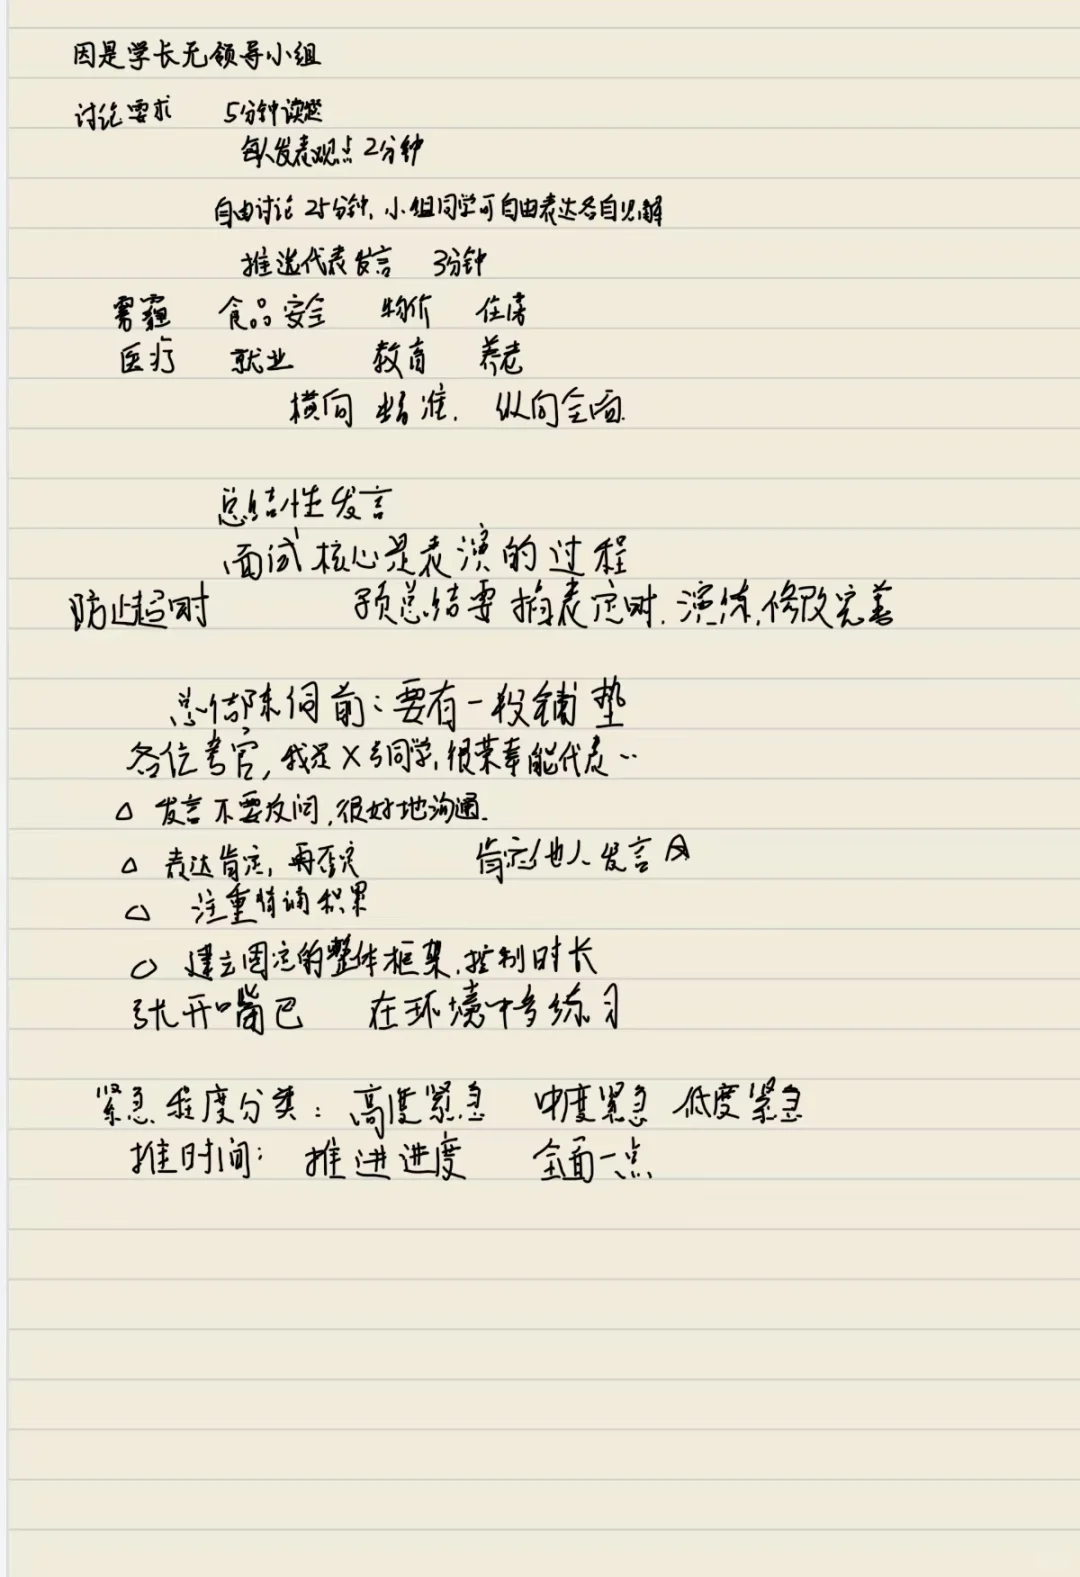 因是学长无领导小组
讨论要求 5分钟读题
每人发表观点2分钟
自由讨论 25分钟,小组同学可自由表达各自见解
推选代表发言 3分钟
雾霾 食品安全 物价 住房
医疗 就业 教育 养老
横向 精准. 纵向全面.
总结性发言
面试核心是表演的过程
防止超时 预总结要掐表定时.演练,修改完善
总结陈词前:要有一段铺垫
各位考官,我是X号同学,很荣幸能代表…
△ 发言不要反问,很好地沟通.
△ 表达肯定,再否定 肯定他人发言
△ 注重精确积累
○ 建立固定的整体框架.控制时长
张开嘴巴 在环境中多练习
紧急程度分类: 高度紧急 中度紧急 低度紧急
推时间: 推进进度 全面一点